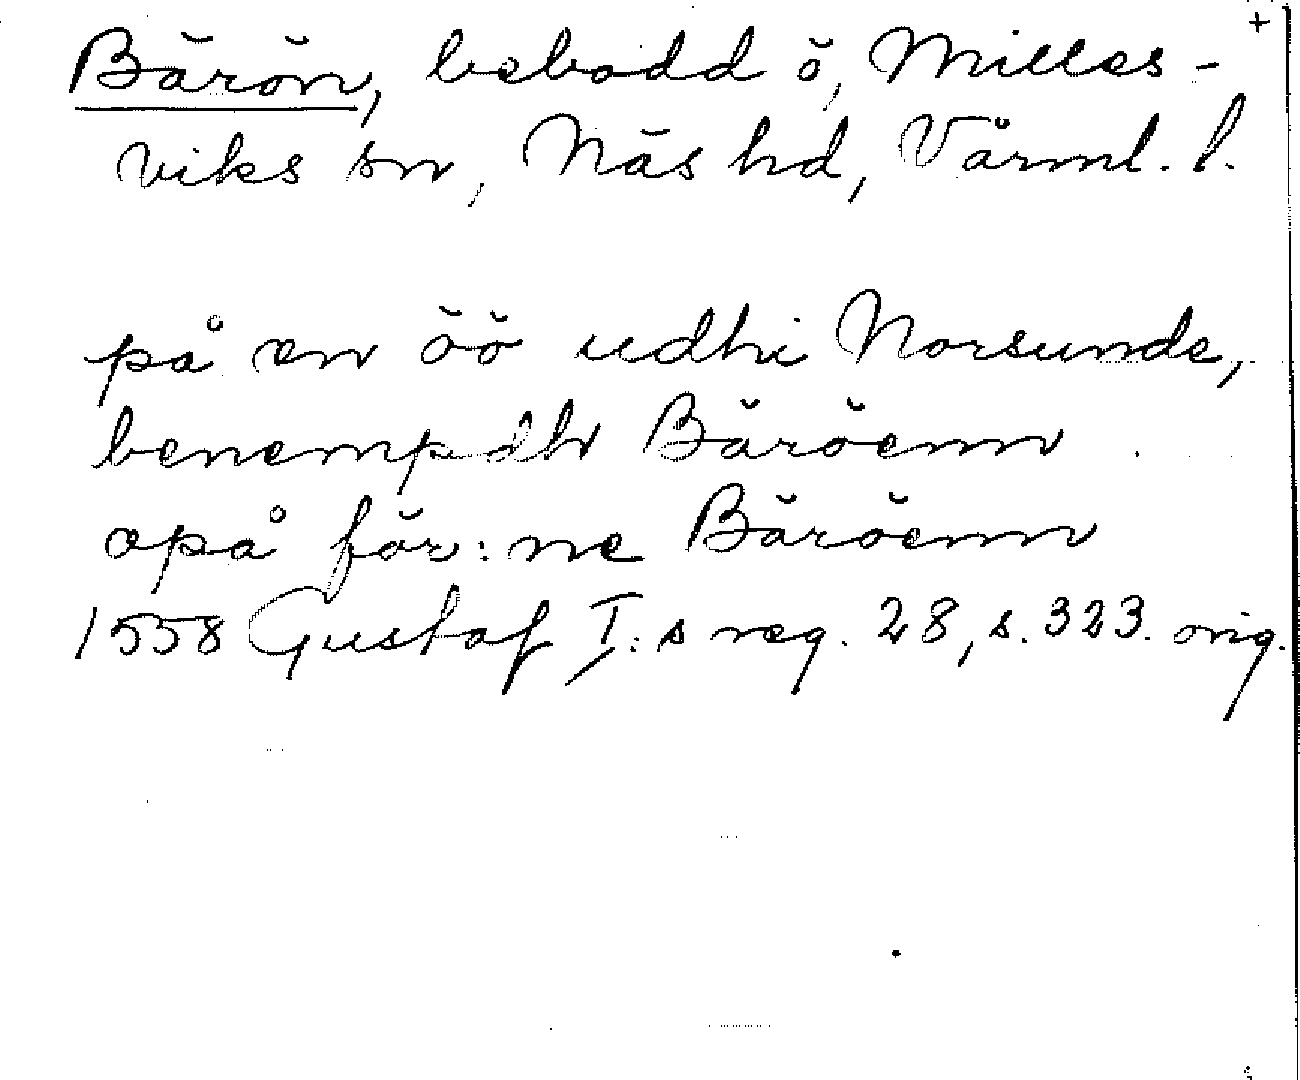 +
Bärön, bebodd ö, Milles-
viks sn, Näs hd, Värml. l.
på en öö udhi Norsunde,
benempdh Bäröenn
opå för:ne Bäröenn
1558 Gustaf I:s reg. 28, s. 323. orig.